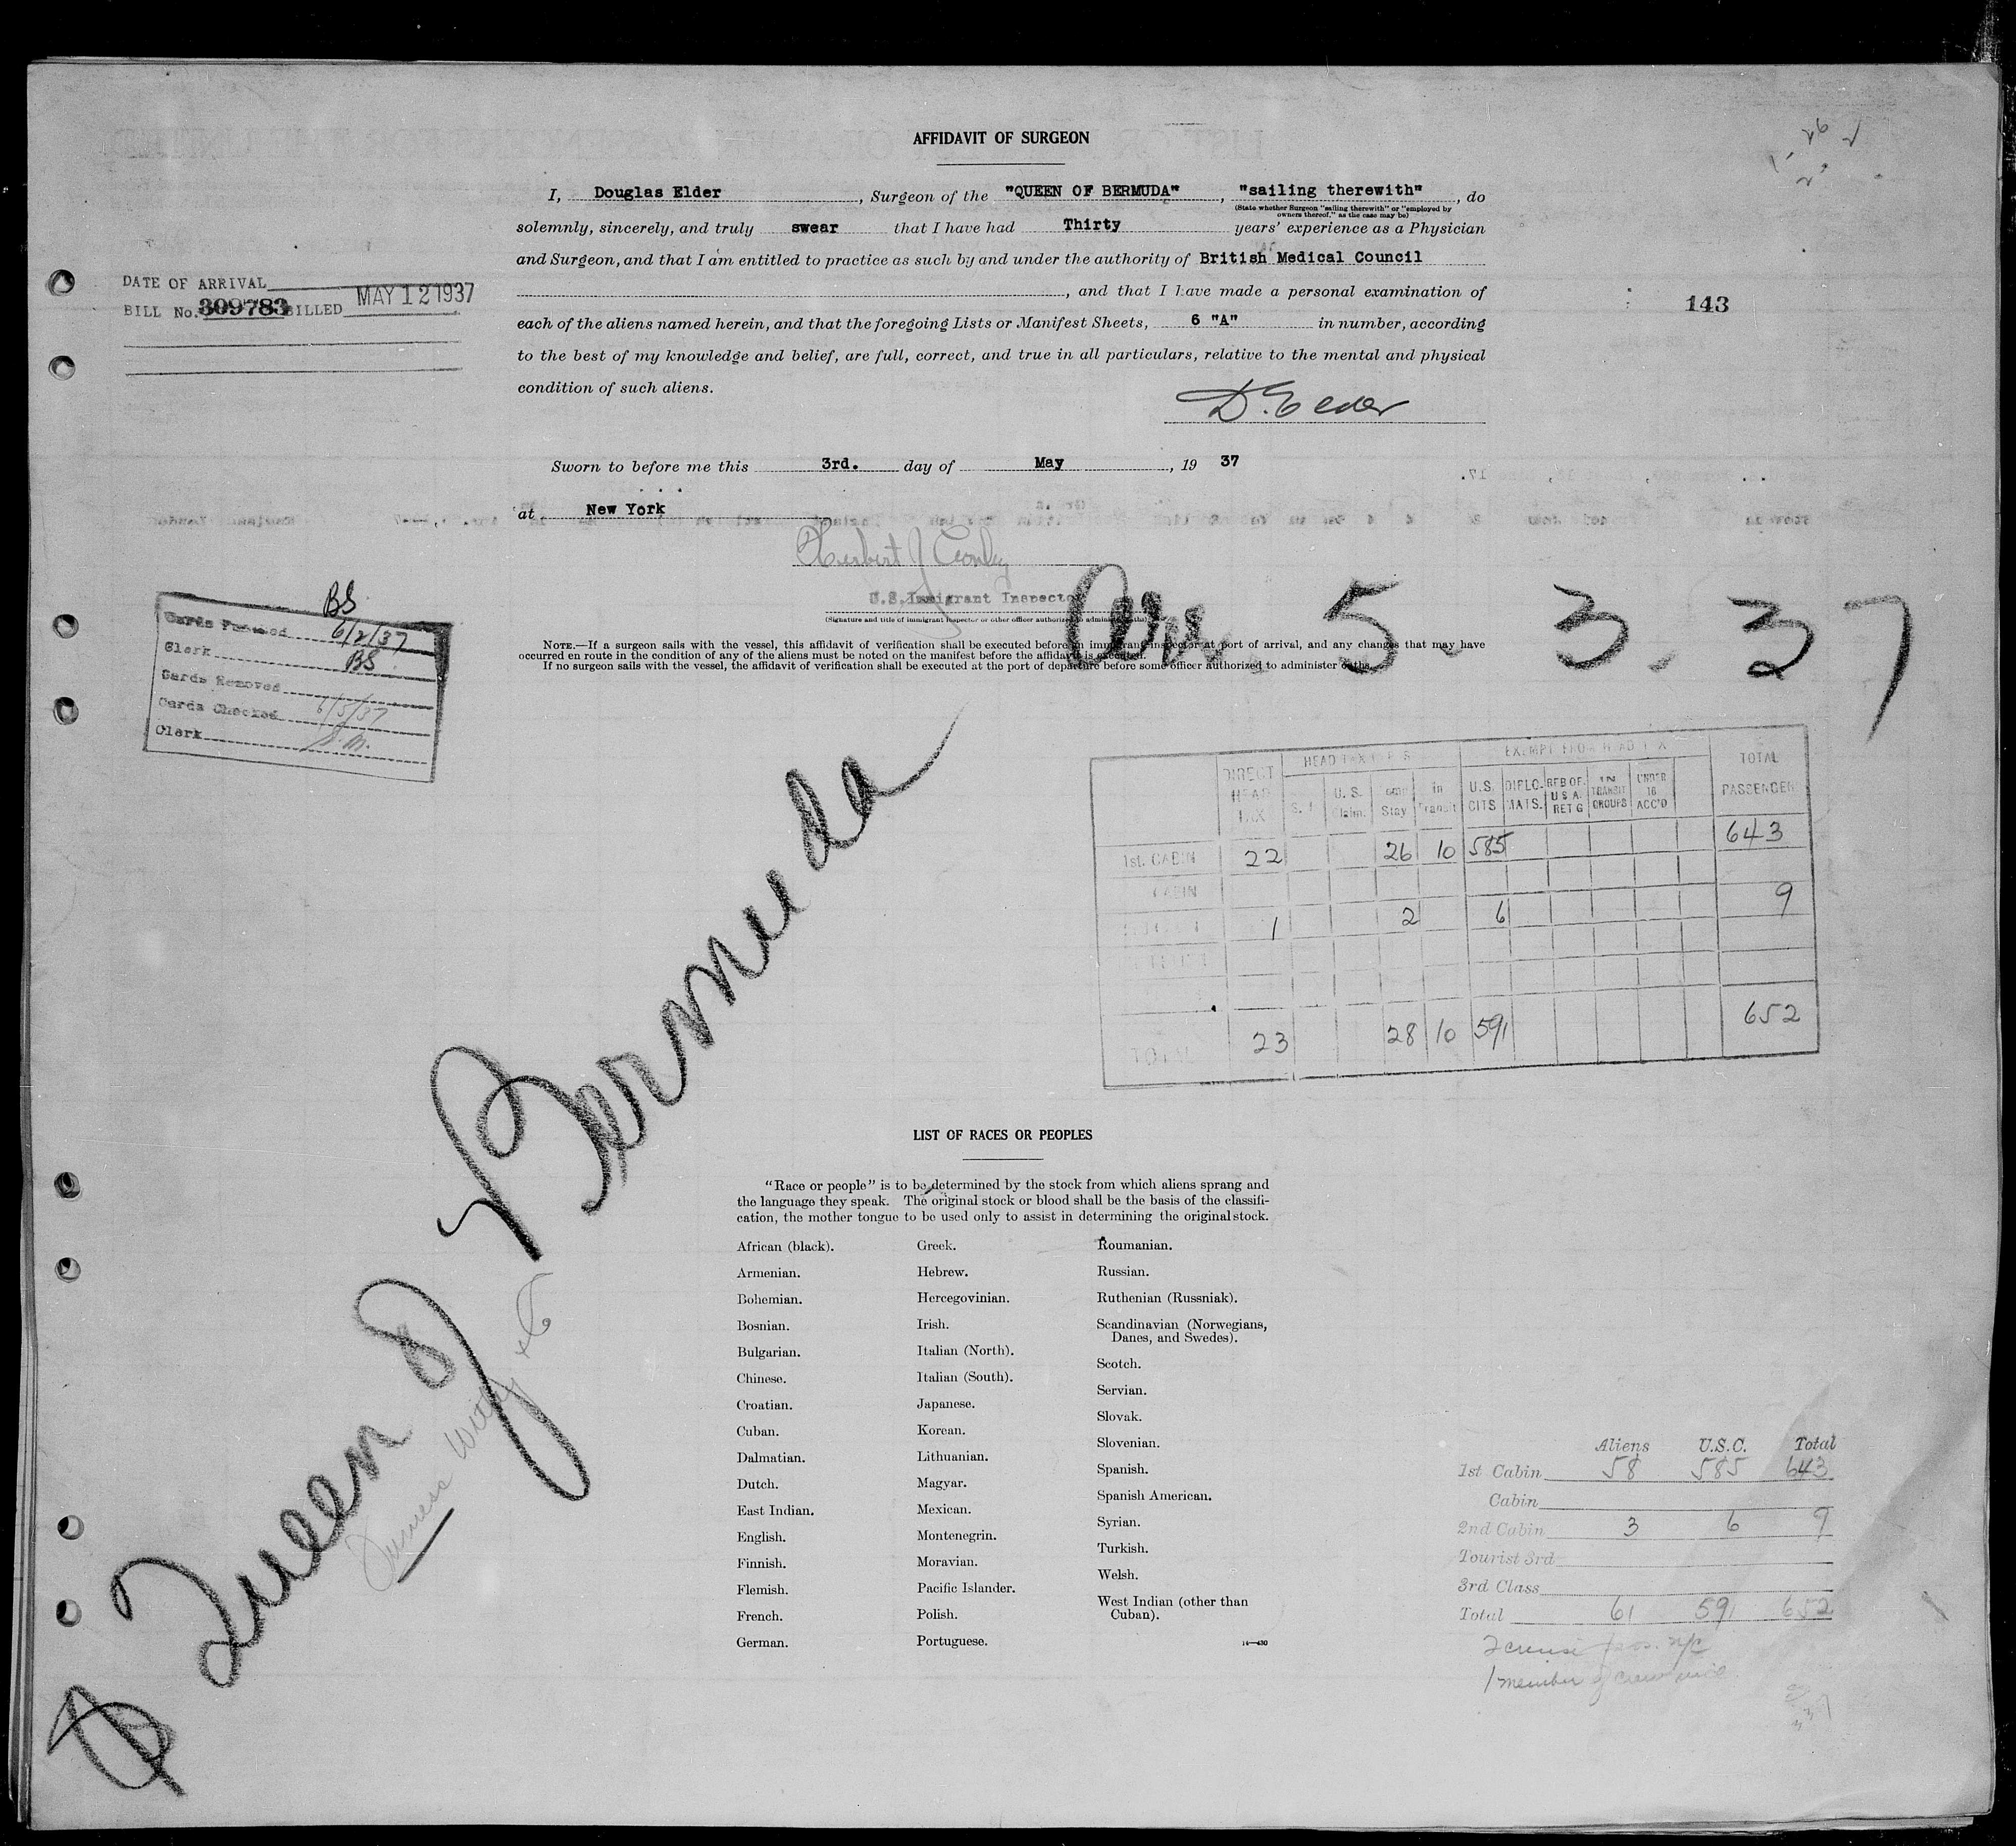 AFFIDAVIT OF SURGEON
I, Douglas Elder, Surgeon of the "QUEEN OF BERMUDA", "sailing therewith", do
(State whether Surgeon "sailing therewith" or "employed by
owners thereof," as the case may be)
solemnly, sincerely, and truly swear that I have had Thirty years' experience as a Physician
and Surgeon, and that I am entitled to practice as such by and under the authority of British Medical Council
, and that I have made a personal examination of
each of the aliens named herein, and that the foregoing Lists or Manifest Sheets, 6 "A" in number, according
to the best of my knowledge and belief, are full, correct, and true in all particulars, relative to the mental and physical
condition of such aliens.
D. Elder
DATE OF ARRIVAL
BILL No. 309783 BILLED MAY 12 1937
143
Sworn to before me this 3rd. day of May, 19 37
at New York
Herbert J Conley
U.S. Immigrant Inspector
(Signature and title of immigrant inspector or other officer authorized to administer oaths)
Arr. 5. 3. 37
NOTE.—If a surgeon sails with the vessel, this affidavit of verification shall be executed before an immigrant inspector at port of arrival, and any changes that may have
occurred en route in the condition of any of the aliens must be noted on the manifest before the affidavit is executed.
If no surgeon sails with the vessel, the affidavit of verification shall be executed at the port of departure before some officer authorized to administer oaths.
BS
Cards Punched 6/2/37
Clerk BS
Cards Removed
Cards Checked 6/5/37
Clerk
DIRECT HEAD TAX HEAD TAX EXEMPT FROM HEAD TAX TOTAL PASSENGER
U.S. Claim. Stay in Transit U.S. CITS DIPLO. MATS. U S A RET G IN TRANSIT GROUPS UNDER 16 ACC'D
1st. CABIN 22 26 10 585 643
CABIN
1 2 6 9
TOTAL 23 28 10 591 652
Queen of Bermuda
LIST OF RACES OR PEOPLES
"Race or people" is to be determined by the stock from which aliens sprang and
the language they speak. The original stock or blood shall be the basis of the classifi-
cation, the mother tongue to be used only to assist in determining the original stock.
African (black).
Armenian.
Bohemian.
Bosnian.
Bulgarian.
Chinese.
Croatian.
Cuban.
Dalmatian.
Dutch.
East Indian.
English.
Finnish.
Flemish.
French.
German.
Greek.
Hebrew.
Hercegovinian.
Irish.
Italian (North).
Italian (South).
Japanese.
Korean.
Lithuanian.
Magyar.
Mexican.
Montenegrin.
Moravian.
Pacific Islander.
Polish.
Portuguese.
Roumanian.
Russian.
Ruthenian (Russniak).
Scandinavian (Norwegians,
Danes, and Swedes).
Scotch.
Servian.
Slovak.
Slovenian.
Spanish.
Spanish American.
Syrian.
Turkish.
Welsh.
West Indian (other than
Cuban).
14—430
Aliens U.S.C. Total
1st Cabin 58 585 643
Cabin
2nd Cabin 3 6 9
Tourist 3rd
3rd Class
Total 61 591 652
1 member of crew